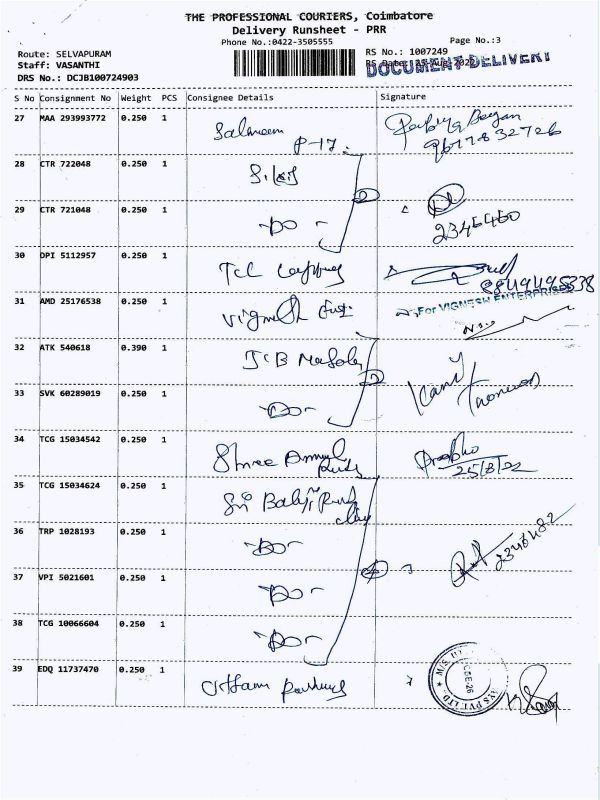 THE PROFESSIONAL COURIERS, Coimbatore
Delivery Runsheet - PRR
Phone No.:0422-3505555
Page No.:3
Route: SELVAPURAM
RS No.: 1007249
Staff: VASANTHI
RS Date: 25-Aug-2022
DOCUMENT DELIVERY
DRS No.: DCJB100724903
S No Consignment No Weight PCS Consignee Details Signature
27 MAA 293993772 0.250 1 Salmeem
P-17.
28 CTR 722048 0.250 1
29 CTR 721048 0.250 1 -Do-
2346460
30 DPI 5112957 0.250 1 TCL
31 AMD 25176538 0.250 1 Vignesh
For VIGNESH ENTERPRISES
32 ATK 540618 0.390 1 JCB Masala
33 SVK 60289019 0.250 1 -Do-
34 TCG 15034542 0.250 1 Shree Prabho
25/8/22
35 TCG 15034624 0.250 1 Sri Balaji
36 TRP 1028193 0.250 1 -Do-
2346482
37 VPI 5021601 0.250 1 -Do-
38 TCG 10066604 0.250 1 -Do-
39 EDQ 11737470 0.250 1